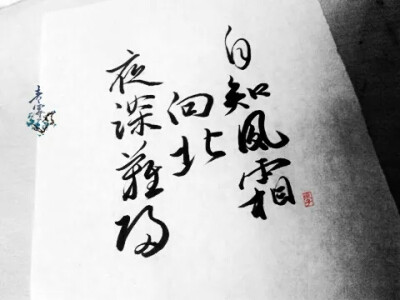 自知風霜
向北
夜深難归